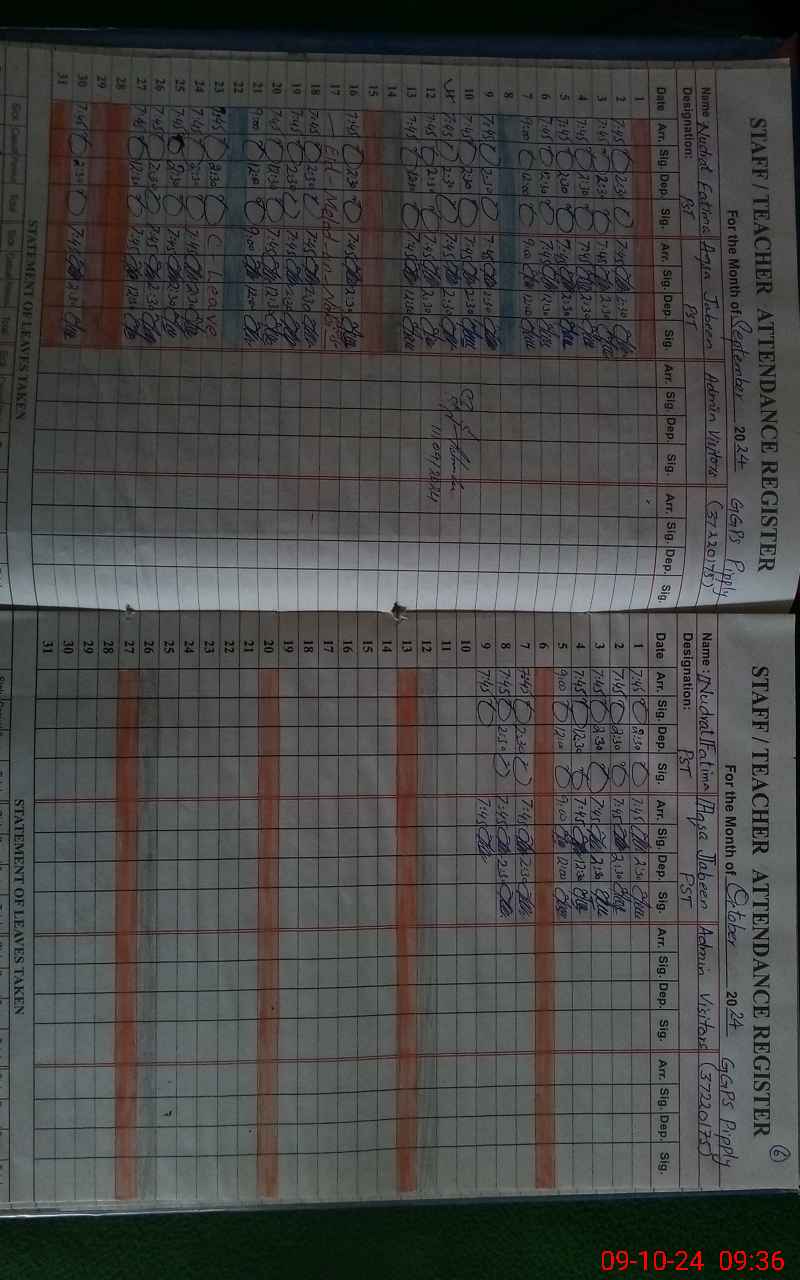 STAFF / TEACHER ATTENDANCE REGISTER
For the Month of September 2024 GGPS Pipply
Name Nudrat Fatima Aqsa Jabeen Admin Visitors (37220175)
Designation: PST PST
Date Arr. Sig. Dep. Sig. Arr. Sig. Dep. Sig. Arr. Sig. Dep. Sig. Arr. Sig. Dep. Sig.
1
2 7:45 2:30 7:45 2:30
3 7:45 2:30 7:45 2:30
4 7:45 2:30 7:45 2:30
5 7:45 2:30 7:45 2:30
6 7:45 12:30 7:45 12:30
7 9:00 12:00 9:00 12:00
8
9 7:45 2:30 7:45 2:30
10 7:45 2:30 7:45 2:30
7:45 2:30 7:45 2:30 11/09/2024
12 7:45 2:30 7:45 2:30
13 7:45 12:30 7:45 12:30
14
15
16 7:45 2:30 7:45 2:30
17 Eid-Melad-un-Nabi
18 7:45 2:30 7:45 2:30
19 7:45 2:30 7:45 2:30
20 7:45 12:30 7:45 12:30
21 9:00 12:00 9:00 12:00
22
23 7:45 2:30 C-Leave
24 7:45 2:30 7:45 2:30
25 7:45 2:30 7:45 2:30
26 7:45 2:30 7:45 2:30
27 7:45 12:30 7:45 12:30
28
29
30 7:45 2:30 7:45 2:30
31
STATEMENT OF LEAVES TAKEN
6
STAFF / TEACHER ATTENDANCE REGISTER
For the Month of October 2024 GGPS Pipply
Name: Nudrat Fatima Aqsa Jabeen Admin Visitors (37220175)
Designation: PST PST
Date Arr. Sig. Dep. Sig. Arr. Sig. Dep. Sig. Arr. Sig. Dep. Sig. Arr. Sig. Dep. Sig.
1 7:45 2:30 7:45 2:30
2 7:45 2:30 7:45 2:30
3 7:45 2:30 7:45 2:30
4 7:45 12:30 7:45 12:30
5 9:00 12:00 9:00 12:00
6
7 7:45 2:30 7:45 2:30
8 7:45 2:30 7:45 2:30
9 7:45 7:45
10
11
12
13
14
15
16
17
18
19
20
21
22
23
24
25
26
27
28
29
30
31
STATEMENT OF LEAVES TAKEN
09-10-24 09:36